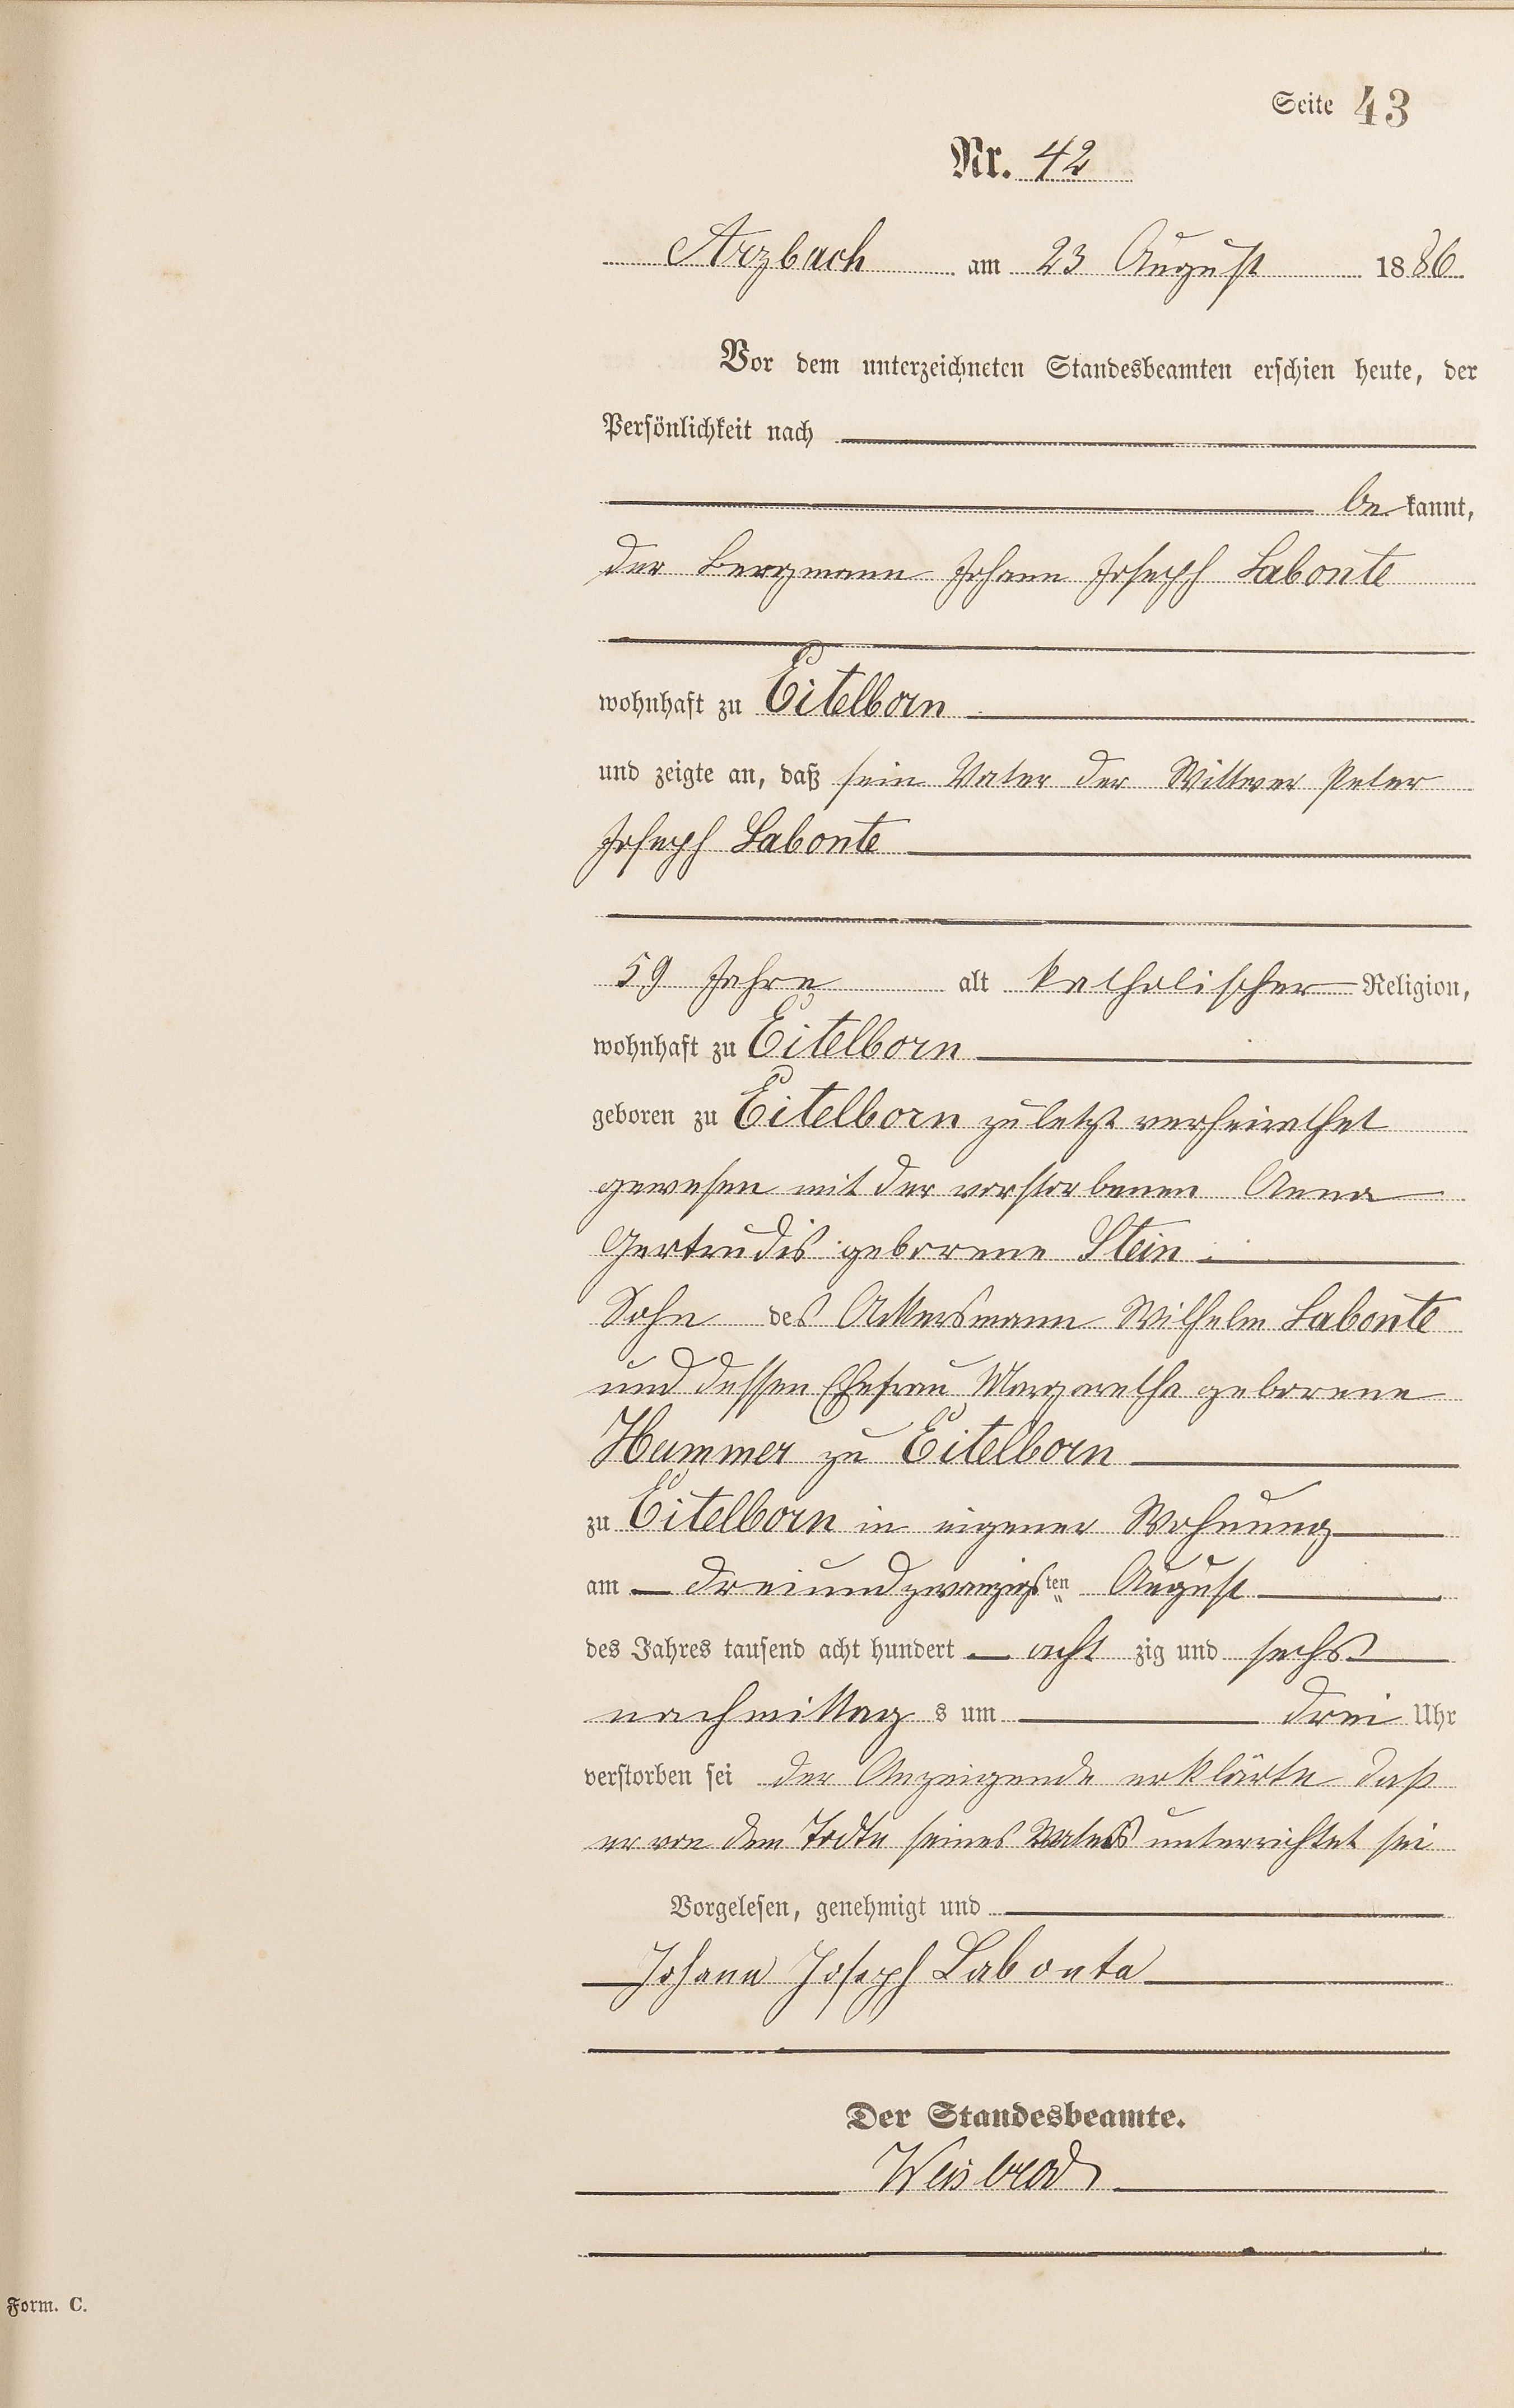 Seite 43
Nr. 42
Arzbach am 23 August 1886
Vor dem unterzeichneten Standesbeamten erschien heute, der
Persönlichkeit nach
be kannt,
der Bergmann Johann Joseph Labonte
wohnhaft zu Eitelborn
und zeigte an, daß sein Vater der Wittwer Peter
Joseph Labonte
59 Jahre alt katholischer Religion,
wohnhaft zu Eitelborn
geboren zu Eitelborn zuletzt verheirathet
gewesen mit der verstorbenen Anna
Gertrudis geborene Stein
Sohn des Ackersmann Wilhelm Labonte
und dessen Ehefrau Margaretha geborene
Hummer zu Eitelborn
zu Eitelborn in eigener Wohnung
am dreiundzwanzigsten August
des Jahres tausend acht hundert acht zig und sechs
nachmittag s um drei Uhr
verstorben sei der Anzeigende erklärte daß
er von dem Todte seines Vaters unterrichtet sei
Vorgelesen, genehmigt und
Johann Joseph Labonte
Der Standesbeamte.
Weisbrod
Form. C.